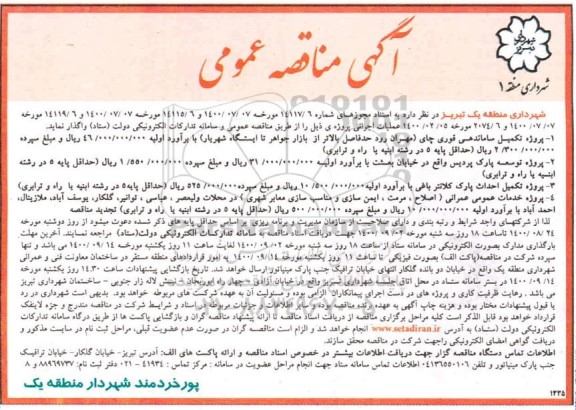 آگهی مناقصه عمومی
شهرداری منطقه ۱
شهرداری منطقه یک تبریز در نظر دارد به استناد مجوزهای شماره ۱۴۱۱۷/۶ مورخه ۱۴۰۰/۰۷/۰۷ و ۱۴۱۱۵/۶ مورخه ۱۴۰۰/۰۷/۰۷ و ۱۴۱۱۹/۶ مورخه
۱۴۰۰/۰۷/۰۷ و ۲۰۷۴/۶ مورخه ۱۴۰۰/۰۲/۰۵ عملیات اجرائی پروژه‌ی ذیل را از طریق مناقصه عمومی و سامانه تدارکات الکترونیکی دولت (ستاد) واگذار نماید.
۱- پروژه تکمیل ساماندهی قوری چای (مهران رود حدفاصل بالاتر از بازار جواهر تا ایستگاه شهریار) با برآورد اولیه ۴۶/۰۰۰/۰۰۰/۰۰۰ ریال و مبلغ سپرده
۲/۳۰۰/۰۰۰/۰۰۰ ریال (حداقل پایه ۵ در رشته ابنیه یا راه و ترابری)
۲- پروژه توسعه پارک پردیس واقع در خیابان بعثت با برآورد اولیه ۳۱/۰۰۰/۰۰۰/۰۰۰ ریال و مبلغ سپرده ۱/۵۵۰/۰۰۰/۰۰۰ ریال (حداقل پایه ۵ در رشته
ابنیه یا راه و ترابری)
۳- پروژه تکمیل احداث پارک کلانتر باقی با برآورد اولیه ۱۰/۵۰۰/۰۰۰/۰۰۰ ریال و مبلغ سپرده ۵۲۵/۰۰۰/۰۰۰ ریال (حداقل پایه ۵ در رشته ابنیه یا راه و ترابری)
۴- پروژه خدمات عمومی عمرانی (اصلاح، مرمت، ایمن سازی و مناسب سازی معابر شهری) در محلات ولیعصر، عباسی، توانیر، گلکار، یوسف آباد، ملازینال،
احمد آباد با برآورد اولیه ۱۰/۰۰۰/۰۰۰/۰۰۰ ریال و مبلغ سپرده ۵۰۰/۰۰۰/۰۰۰ ریال (حداقل پایه ۵ در رشته ابنیه یا راه و ترابری) تجدید مناقصه
لذا از شرکتهای واجد شرایط و رتبه بندی و دارای صلاحیت از سازمان مدیریت و برنامه ریزی کشور بر اساس حداقل پایه های ذکر شده، دعوت میشود از روز دوشنبه مورخه
۱۴۰۰/۰۸/۲۴ لغایت ۱۸ روز سه شنبه مورخه ۱۴۰۰/۰۹/۰۲ جهت دریافت اسناد مناقصه به سامانه تدارکات الکترونیکی دولت(ستاد) مراجعه نمایند. آخرین مهلت
بارگذاری مدارک بصورت الکترونیکی در سامانه ستاد از ساعت ۱۸ روز سه شنبه مورخه ۱۴۰۰/۰۹/۰۲ لغایت ساعت ۱۱ روز یکشنبه مورخه ۱۴۰۰/۰۹/۱۴ می باشد و تنها
سپرده شرکت در مناقصه(پاکت الف) بصورت فیزیکی تا ساعت ۱۱ روز یکشنبه مورخه ۱۴۰۰/۰۹/۱۴ به امور قراردادهای منطقه مستقر در ساختمان معاونت فنی و عمرانی
شهرداری منطقه یک واقع در خیابان دو بانده گلکار انتهای خیابان ترافیک جنب پارک مینیاتور ارسال خواهد شد. تاریخ بازگشایی پیشنهادات ساعت ۱۴:۳۰ روز یکشنبه مورخه
۱۴۰۰/۰۹/۱۴ در بستر سامانه ستاد در محل اتاق جلسه شهرداری تبریز واقع در خیابان آزادی - چهار راه ابوریحان - نبش لاله زار جنوبی - ساختمان شهرداری تبریز
می باشد. رعایت ظرفیت کاری و پروژه های در دست اجرای پیمانکاران الزامی بوده و مسئولیت آن به عهده شرکت های مربوطه خواهد بود. بدیهی است شهرداری در رد
یا قبول پیشنهادات مختار بوده و هزینه چاپ آگهی به عهده برنده مناقصه خواهد بود، سایر اطلاعات و جزئیات مربوطه در اسناد مناقصه مندرج
الکترونیکی دولت (ستاد) به آدرس www.setadiran.ir انجام خواهد شد و الزام است مناقصه گران در صورت عدم عضویت قبلی، مراحل ثبت نام در سایت مذکور و
دریافت گواهی امضای الکترونیکی راجهت شرکت در مناقصه محقق سازند.
اطلاعات تماس دستگاه مناقصه گزار جهت دریافت اطلاعات بیشتر در خصوص اسناد مناقصه و ارائه پاکت های الف: آدرس تبریز- خیابان گلکار- خیابان ترافیک
جنب پارک مینیاتور و تلفن ۰۴۱۳۶۵۵۰۱۰۶ اطلاعات تماس سامانه ستاد جهت انجام مراحل عضویت در سامانه : مرکز تماس : ۴۱۹۳۴ - ۰۲۱ دفتر ثبت نام: ۸۸۹۶۹۷۳۷ و ۸
پورخردمند شهردار منطقه یک
۱۳۳۵